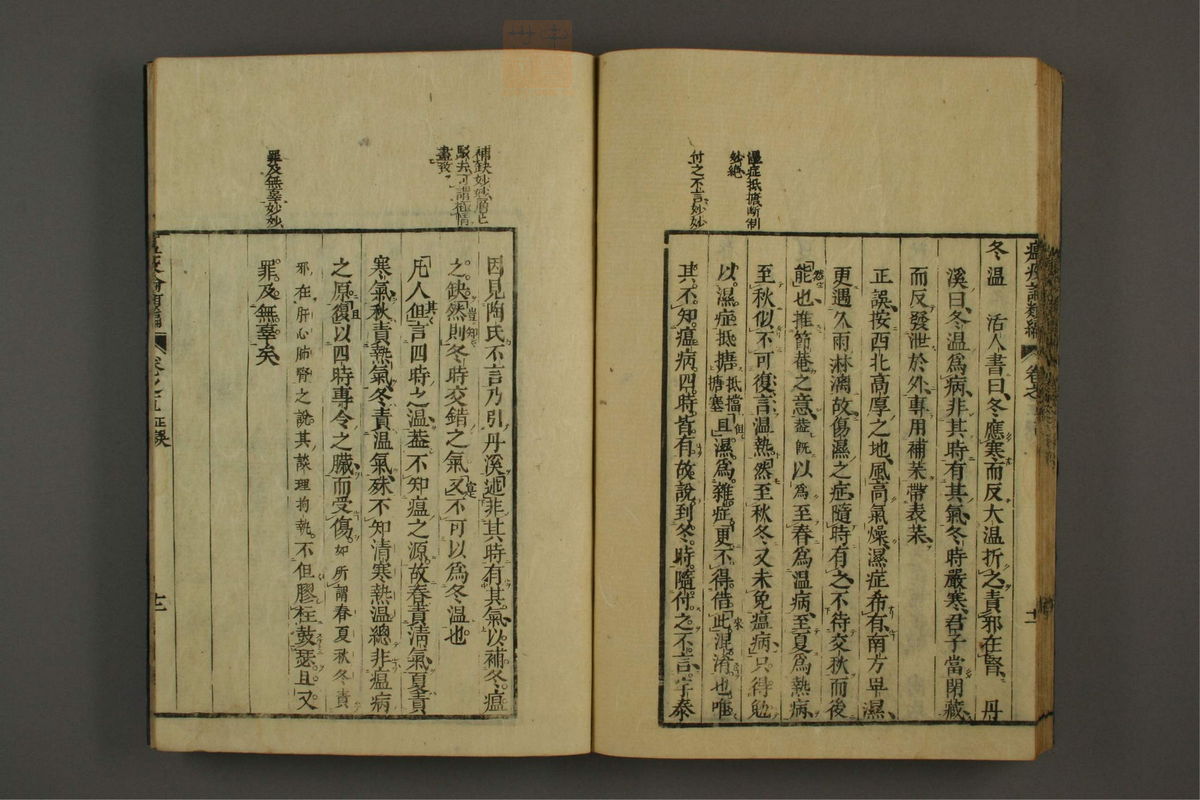 溫症抵搪断制
妙絶
付之不言妙妙
瘟疫論類編 卷之五 正誤 十二
冬温 活人書曰冬應寒而反大温折之責邪在腎丹
溪曰冬温爲病非其時有其氣冬時嚴寒君子當閉藏
而反發泄於外專用補茱帶表茱
正誤按西北高厚之地風高氣燥濕症希有南方畢濕
更遇久雨淋漓故傷濕之症隨時有之不待交秋而後
能也推節菴之意蓋既以爲至春爲温病至夏爲熱病
至秋似不可復言温熱然至秋冬又未免瘟病只得勉
以濕症抵搪抵擋搪塞且濕爲雜症更不得借此混淆也嘔
其不知瘟病四時皆有故說到冬時隨付之不言宇泰
補缺妙妙層已
駁去可謂
盡致
罪及無辜妙妙
因見陶氏不言乃引丹溪述非其時有其氣以補冬瘟
之缺然則冬時交錯之氣又不可以爲冬温也
凡人但言四時之温蓋不知瘟之源故春責清氣夏責
寒氣秋責熱氣冬責温氣殊不知清寒熱温總非瘟病
之原復以四時專令之臟而受傷如所謂春夏秋冬責
邪在肝心肺腎之說其談理拘執不但膠柱鼓瑟且又
罪及無辜矣